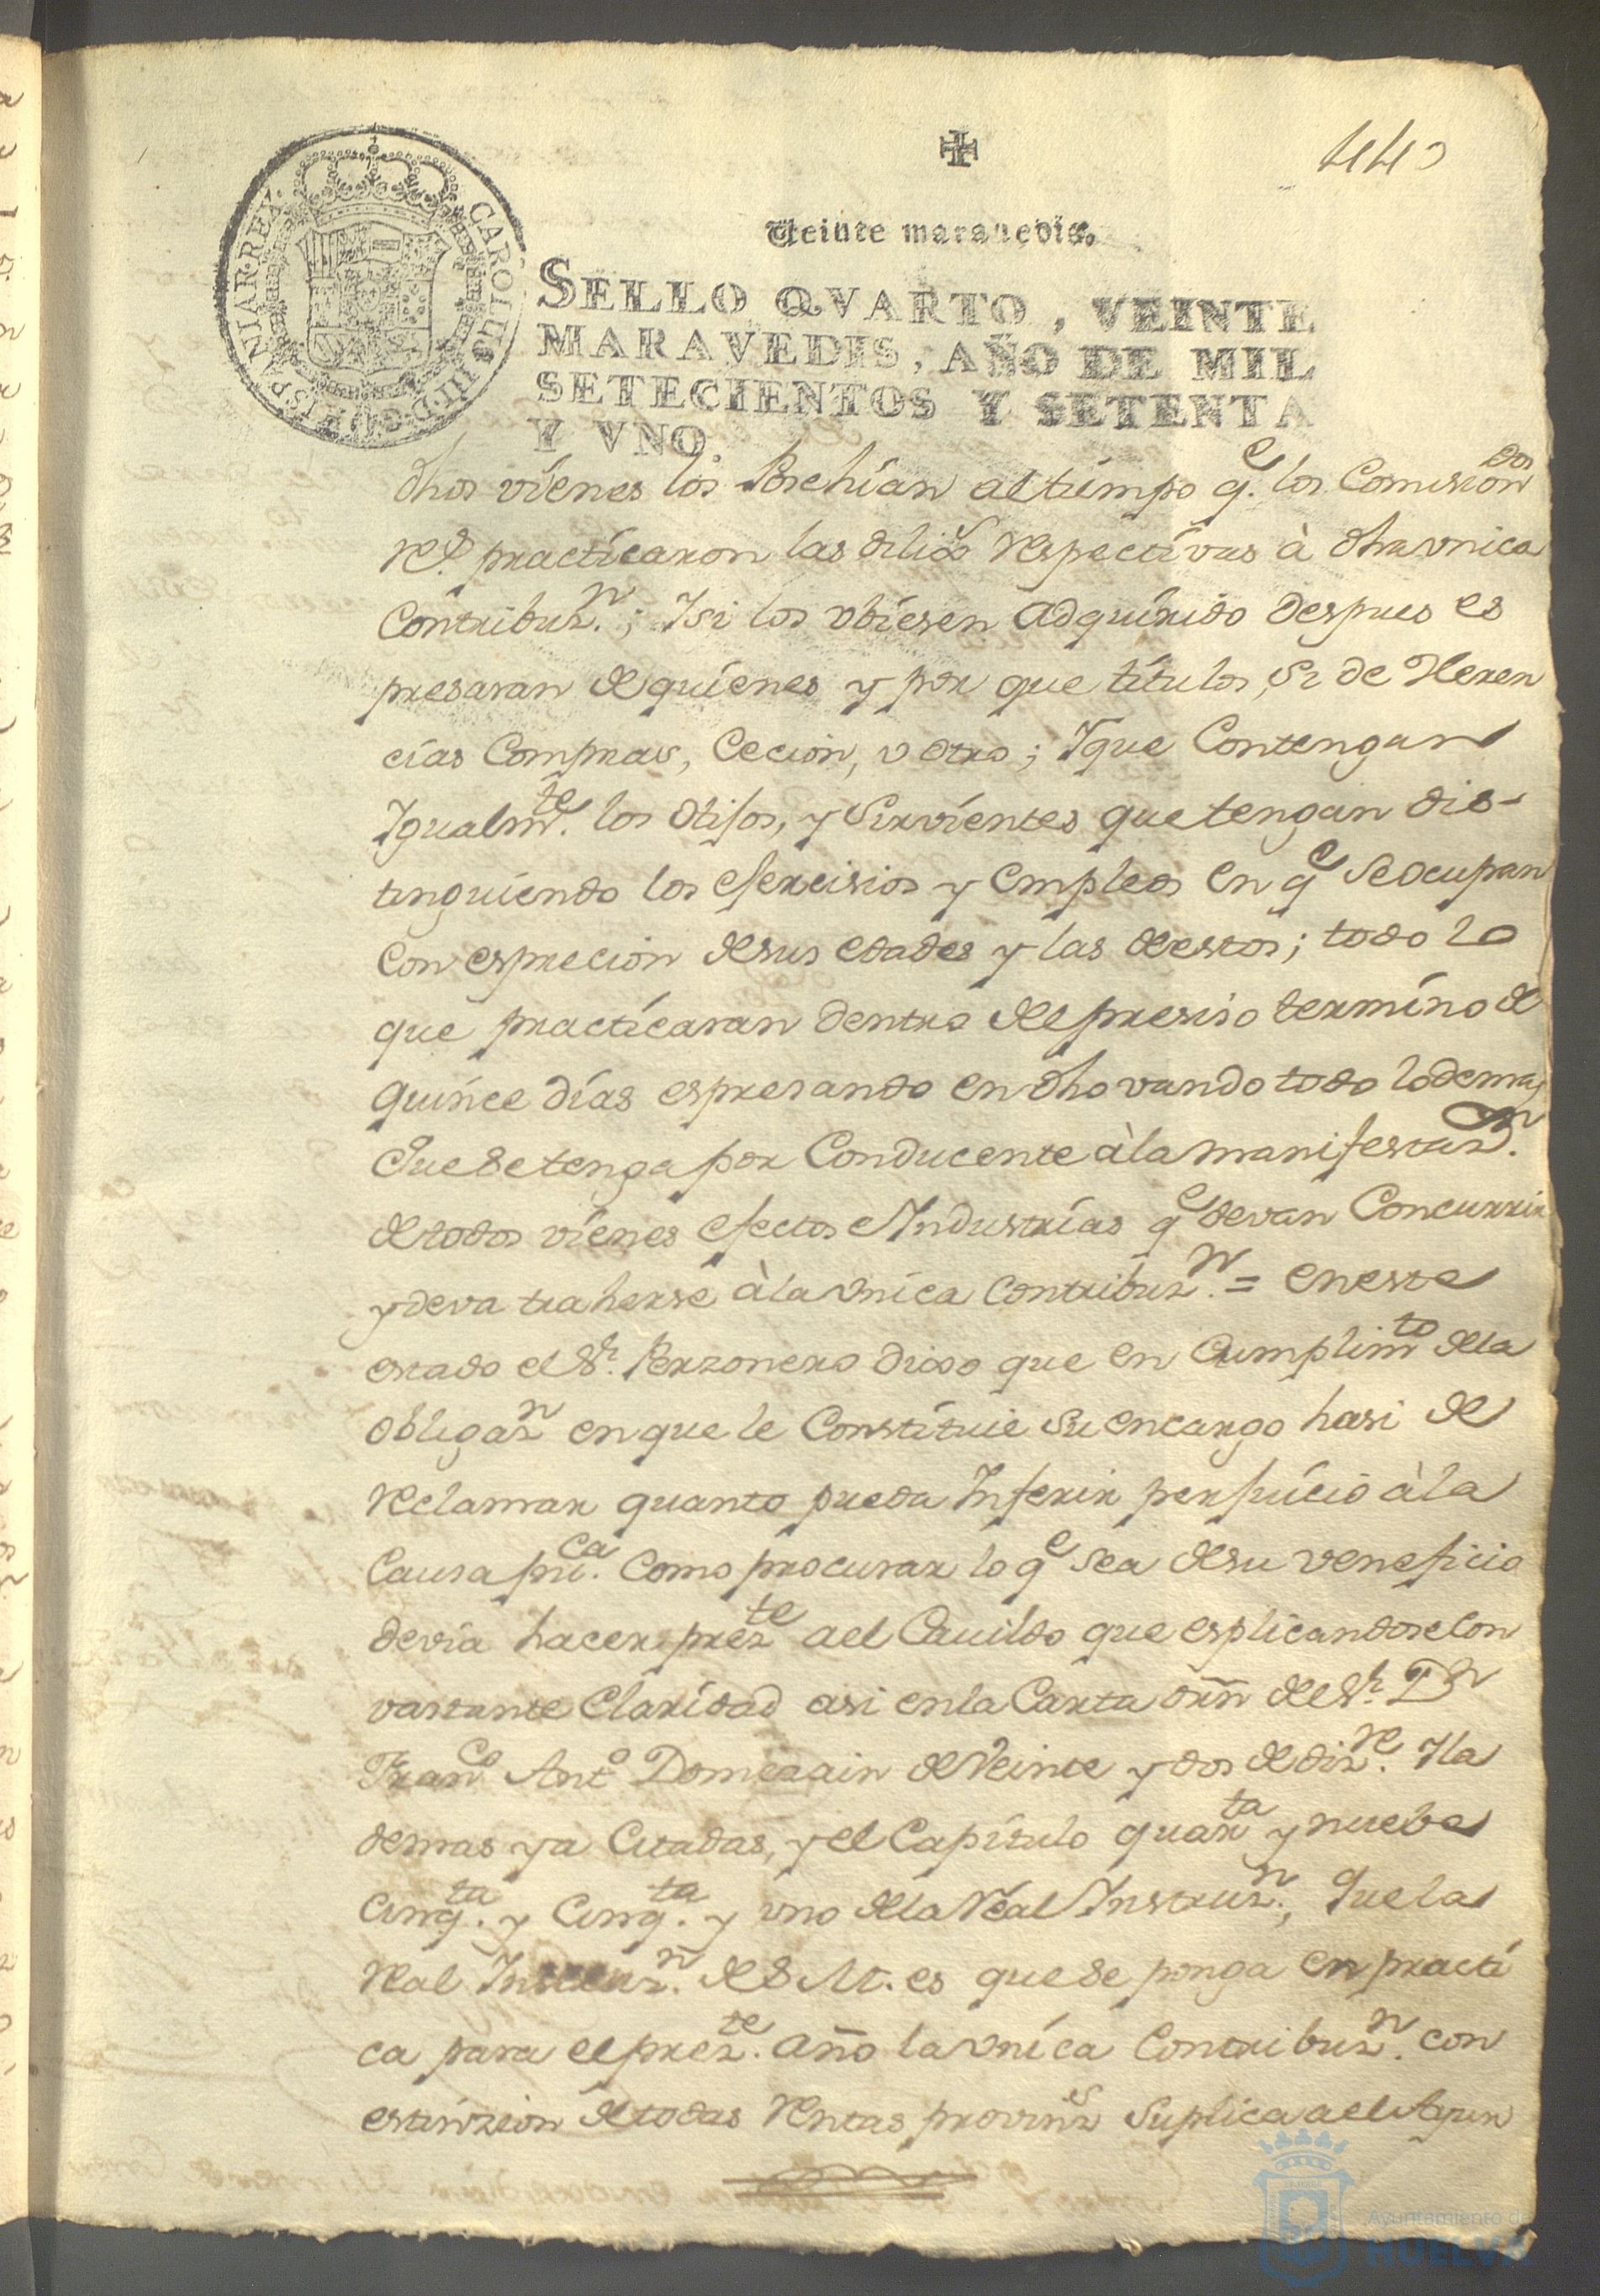 CAROLUS III D.G. HISPANIAR. REX.
Veinte marauedis.
SELLO QVARTO, VEINTE
MARAVEDIS, AÑO DE MIL
SETECIENTOS Y SETENTA
Y VNO.
dhos vienes los Posehian al tiempo q.e los Comision.dos
R.s practicaron las dilig.s respectivas à dha vnica
Contribuz.n; Y si los vbiesen adquirido despues es
presaran de quienes y por que titulos, Si de Heren
cias Compras, Cecion, v otro; Y que Contengan
Igualm.te los Hijos, y Sirvientes que tengan dis-
tinguiendo los ejercisios y empleos en q.e Se ocupan
con esprecion de sus edades y las de estos; todo lo
que practicaran dentro del presiso termino de
quince dias espresando en dho vando todo lo demas
Que Se tenga por Conducente à la manifestaz.n
de todos vienes efectos e Yndustrias q.e devan Concurrir
y deva traherse à la vnica Contribuz.n = en este
estado el S.r Perzonero dixo que en Cumplim.to de la
obligaz.n en que le Constituie Su encargo hasi de
reclamar quanto pueda Inferir perjuicio à la
Causa pu.ca Como procurar lo q.e sea de su veneficio
devia hacer prez.te a el Cauildo que esplicandose con
vastante Claridad asi en la Carta orñ del S.r D.n
Fran.co Ant.o Domezain de Veinte y dos de diz.re Y la
demas ya Citadas, y el Capitulo quar.ta y nueve
Cinq.ta y Cinq.ta y vno de la Real Instruz.n, Que la
Real de S. M. es que se ponga en practi
ca para el prez.te año la vnica Contribuz.n con
estinzion de todas Rentas provinz.s Suplica a el Ayun
Ayuntamiento de
HUELVA